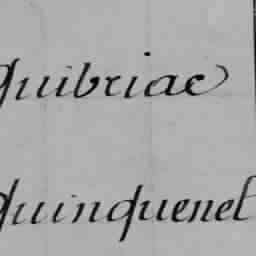 Quibriac
Quinquenel